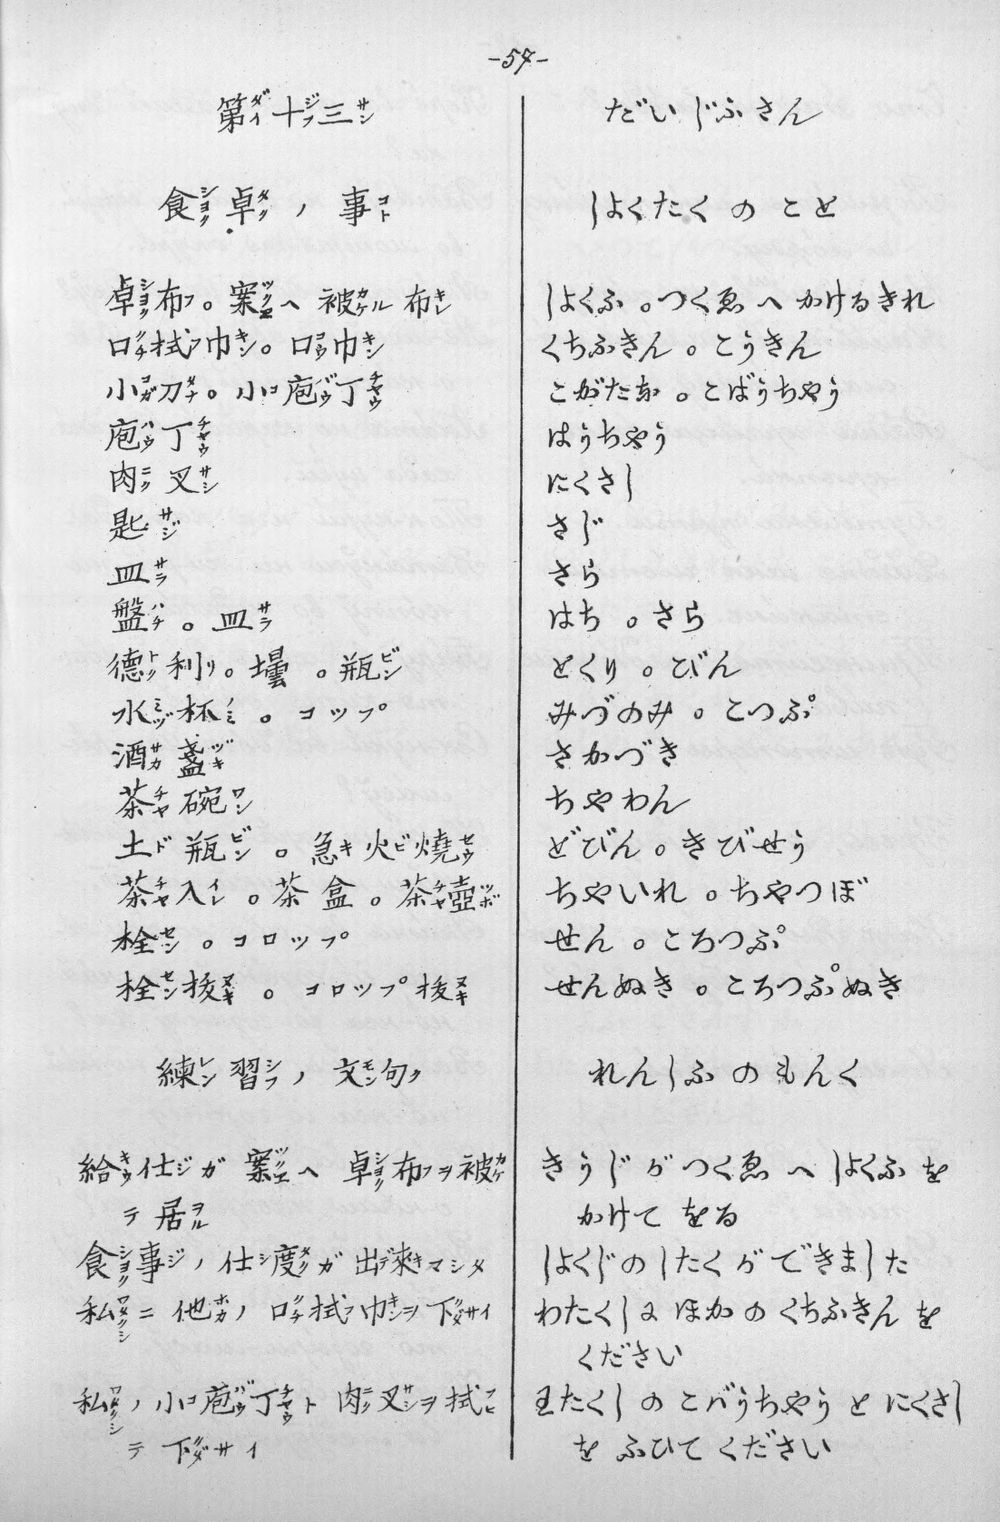 -57-
第十三 だいじふさん
食卓ノ事 しよくたくのこと
卓布。案ヘ被ル布 しよくふ。つくゑへかけるきれ
口拭巾。口巾 くちふきん。こうきん
小刀。小庖丁 こがたな。こばうちやう
庖丁 はうちやう
肉叉 にくさし
匙 さじ
皿 さら
盤。皿 はち。さら
德利。壜。瓶 とくり。びん
水杯。コップ みづのみ。こつぷ
酒盞 さかづき
茶碗 ちやわん
土瓶。急火燒 どびん。きびせう
茶入。茶盒。茶壺 ちやいれ。ちやつぼ
栓。コロップ せん。ころつぷ
栓拔。コロップ拔 せんぬき。ころつぷぬき
練習ノ文句 れんしふのもんく
給仕ガ案ヘ卓布ヲ被 きうじがつくゑへしよくふを
テ居 かけてをる
食事ノ仕度ガ出來マシタ しよくじのしたくができました
私ニ他ノ口拭巾ヲ下サイ わたくしにほかのくちふきんを
ください
私ノ小庖丁ト肉叉ヲ拭 わたくしのこばうちやうとにくさし
テ下サイ をふひてください